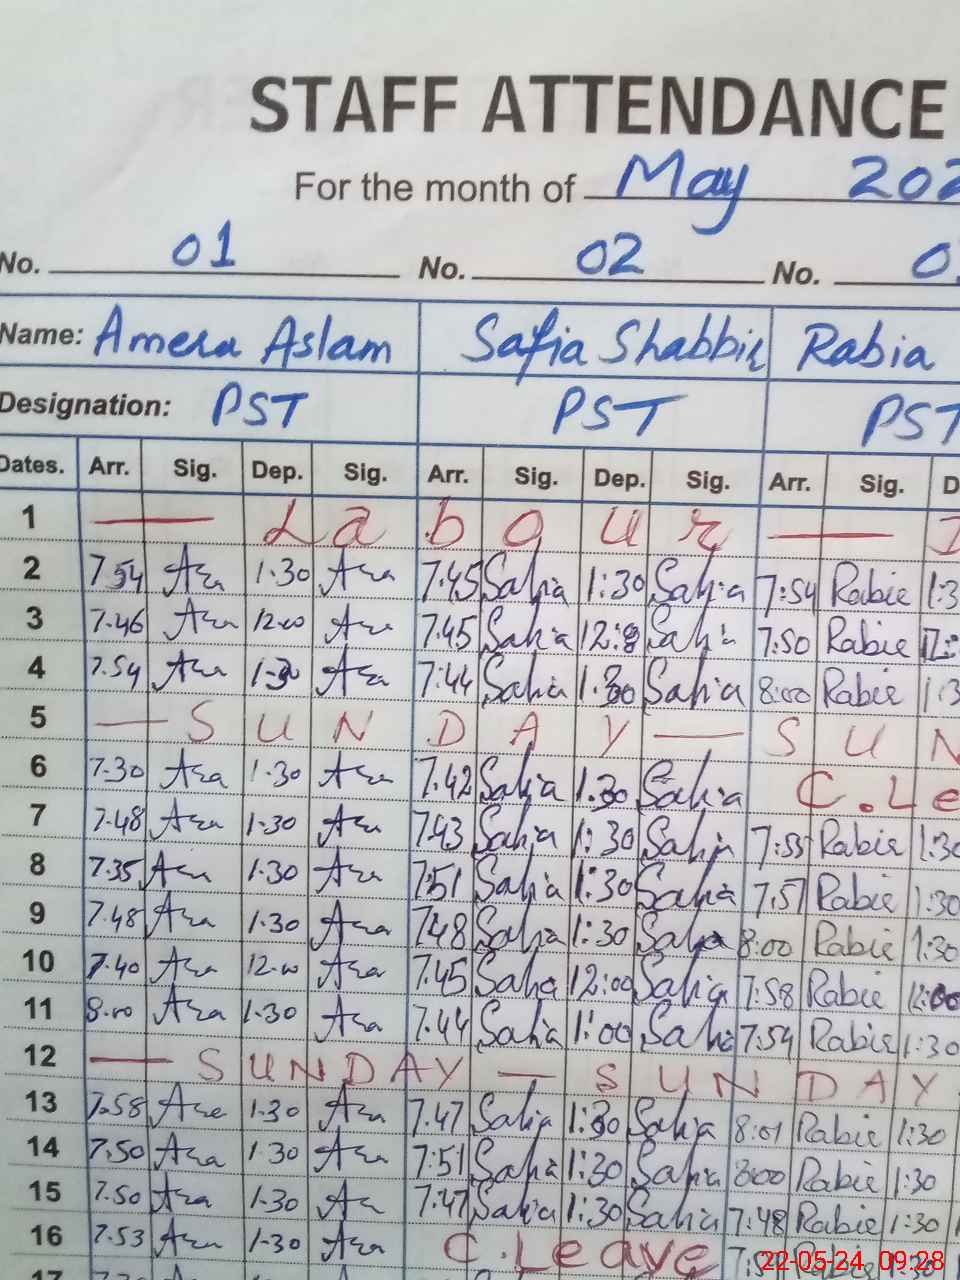 STAFF ATTENDANCE
For the month of May 202
No. 01 No. 02 No. 0
Name: Amera Aslam Safia Shabbir Rabia
Designation: PST PST PST
Dates. Arr. Sig. Dep. Sig. Arr. Sig. Dep. Sig. Arr. Sig. D
1 — Labour —
2 7.54 Aza 1.30 Aza 7.45 Safia 1:30 Safia 7:54 Rabie 1:3
3 7.46 Aza 12.00 Aza 7.45 Safia Safia 7:50 Rabie 12:
4 7.54 Aza 1.30 Aza 7:44 Safia 1.30 Safia 8:00 Rabie 1:3
5 — SUNDAY — SUN
6 7.30 Aza 1.30 Aza 7.42 Safia 1.30 Safia C.Le
7 7.48 Aza 1.30 Aza 7.43 Safia 1:30 Safia 7:55 Rabie 1:30
8 7.35 Aza 1.30 Aza 7:51 Safia 1:30 Safia 7:57 Rabie 1:30
9 7.48 Aza 1.30 Aza 7.48 Safia 1:30 Safia 8:00 Rabie 1:30
10 7.40 Aza 12.00 Aza 7.45 Safia 12:00 Safia 7:58 Rabie 12:00
11 8.00 Aza 1.30 Aza 7.44 Safia 1:00 Safia 7:54 Rabie 1:30
12 — SUNDAY — SUNDAY
13 7.58 Aza 1.30 Aza 7.47 Safia 1:30 Safia 8:01 Rabie 1:30
14 7.50 Aza 1.30 Aza 7:51 Safia 1:30 Safia 8:00 Rabie 1:30
15 7.50 Aza 1.30 Aza 7:47 Safia 1:30 Safia 7:48 Rabie 1:30
16 7.53 Aza 1.30 Aza C.Leave
17
22-05-24 09:28